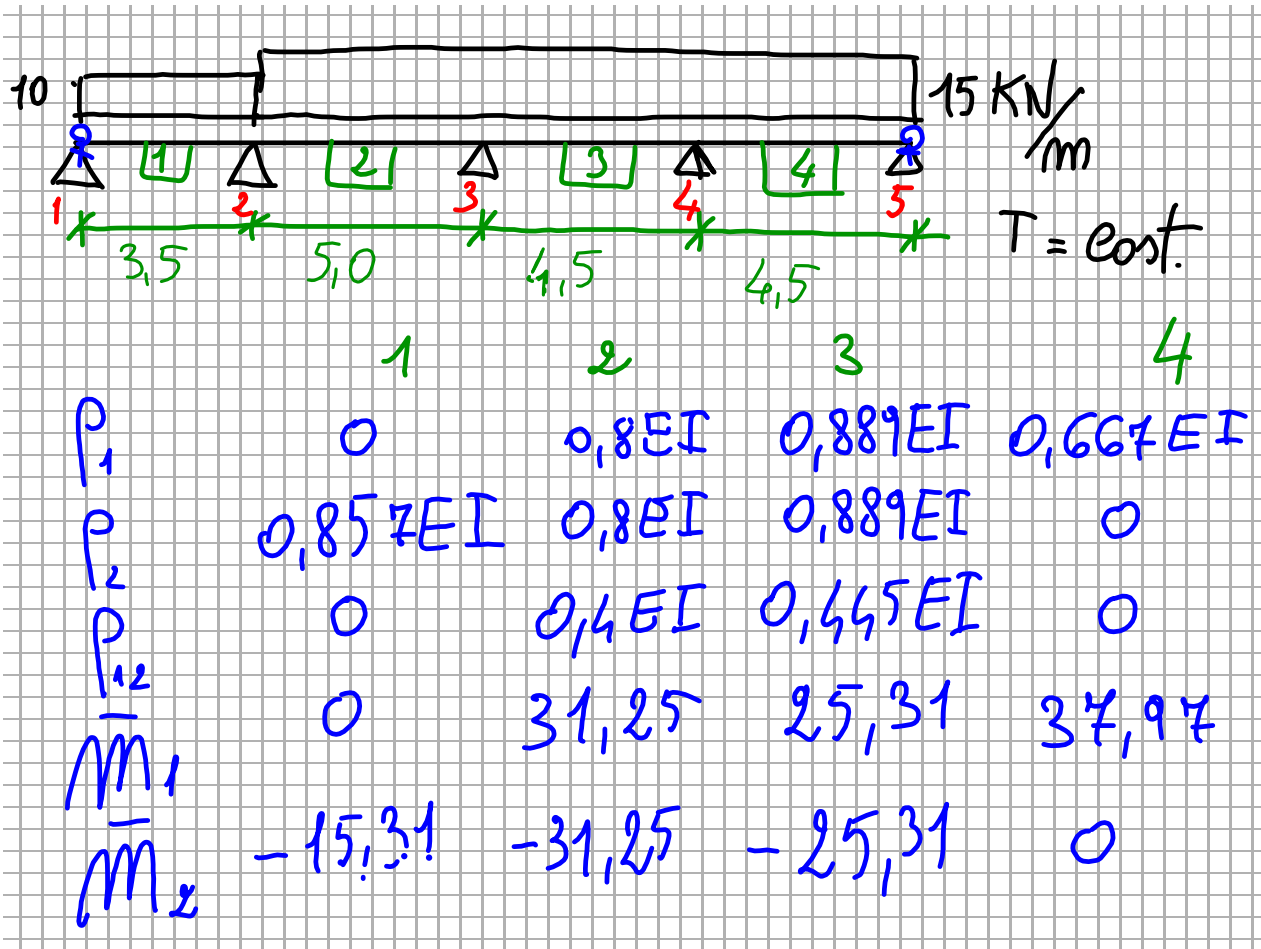 10 15 KN/m
1 2 3 4
1 2 3 4 5
3,5 5,0 4,5 4,5 T = cost.
1 2 3 4
ρ1 0 0,8EI 0,889EI 0,667EI
ρ2 0,857EI 0,8EI 0,889EI 0
ρ12 0 0,4EI 0,445EI 0
m̅1 0 31,25 25,31 37,97
m̅2 -15,31 -31,25 -25,31 0